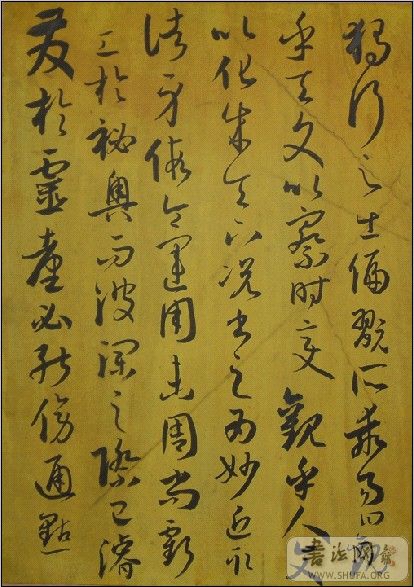 獨行之士偏翫所乖易曰觀
乎天文以察時變觀乎人文
以化成天下況書之為妙近取
諸身假令運用未周尚虧
工於祕奧而波瀾之際已濬
發於靈臺必能傍通點
書法网
WWW.SHUFA.ORG